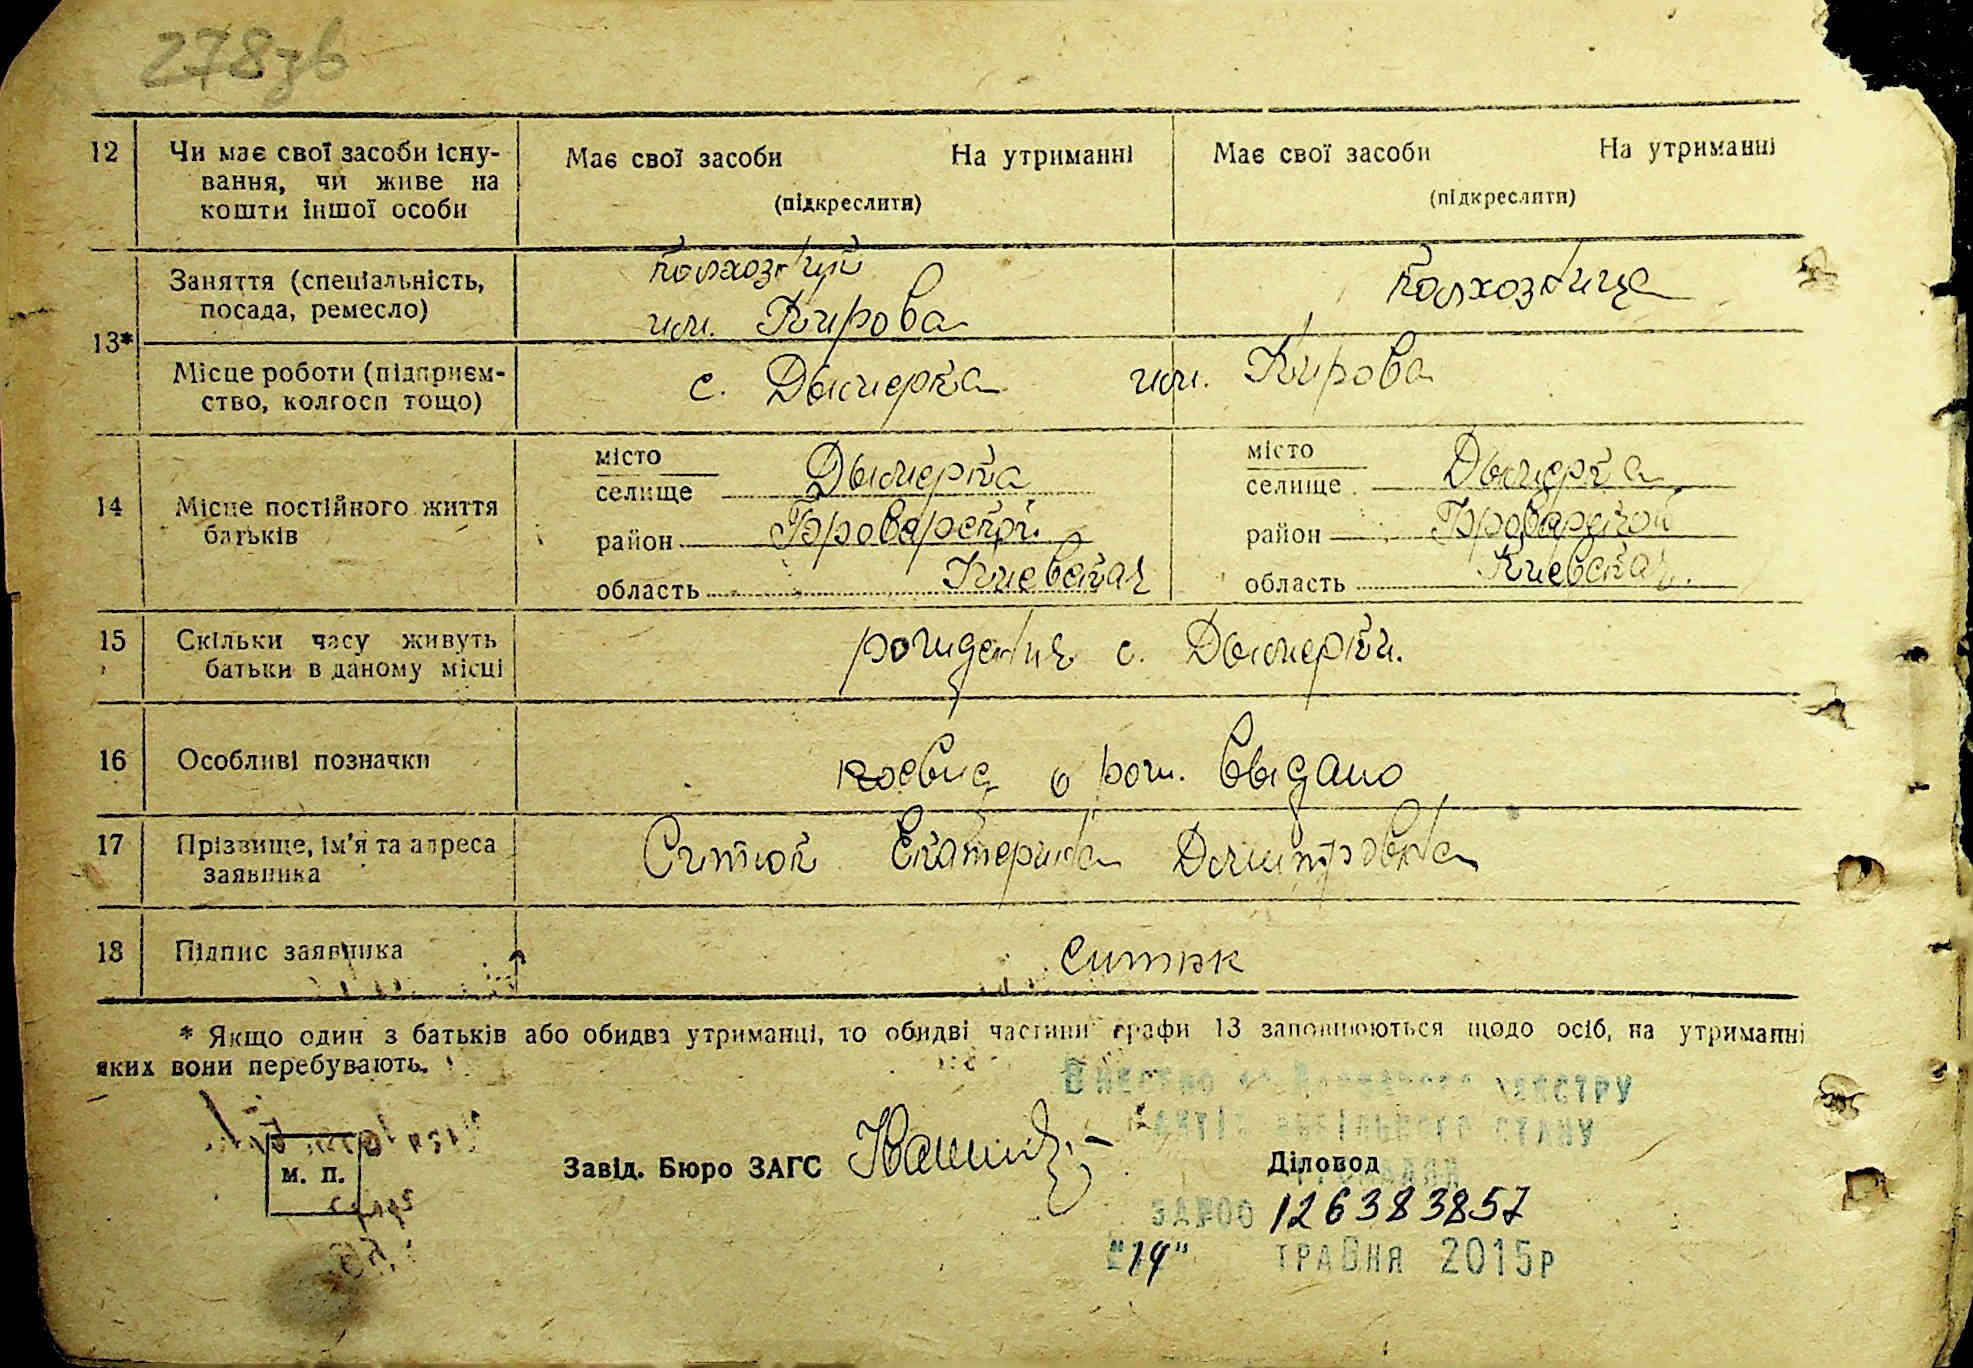 278зв
12 Чи має свої засоби існу- Має свої засоби На утриманні Має свої засоби На утриманні
вання, чи живе на
кошти іншої особи (підкреслити) (підкреслити)
Заняття (спеціальність, колхозник колхозница
посада, ремесло) им. Кирова
13*
Місце роботи (підприєм- с. Дымерка им. Кирова
ство, колгосп тощо)
місто місто
селище Дымерка селище Дымерка
14 Місце постійного життя
батьків район Броварской район Броварской
область Киевская область Киевская.
15 Скільки часу живуть рождения с. Дымерки.
батьки в даному місці
16 Особливі позначки о рож. выдано
17 Прізвище, ім'я та адреса Ситюк Екатерина Дмитровна
заявника
18 Підпис заявника ситюк
* Якщо один з батьків або обидва утриманці, то обидві частини графи 13 заповнюються щодо осіб, на утриманні
яких вони перебувають.
Внесено до Державного реєстру
актів цивільного стану
громадян
М. П. Завід. Бюро ЗАГС Діловод
ЗА №00 126383857
"14" травня 2015р